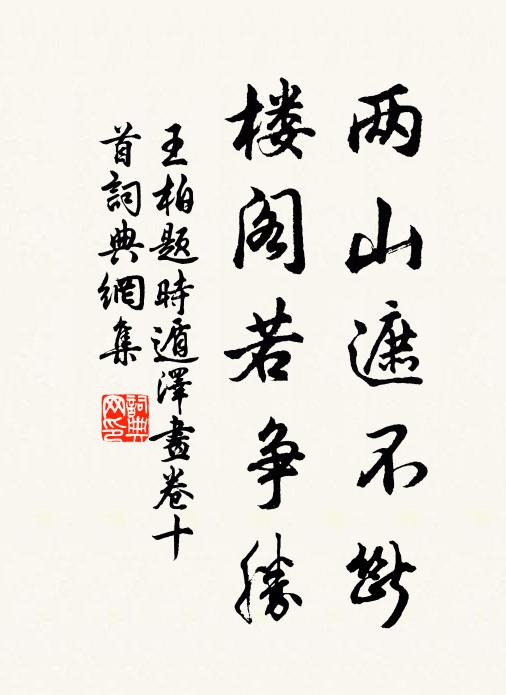 两山遮不断
楼阁若争勝
王柏题時遁澤畫卷十
首詞典網集
詞典
网印